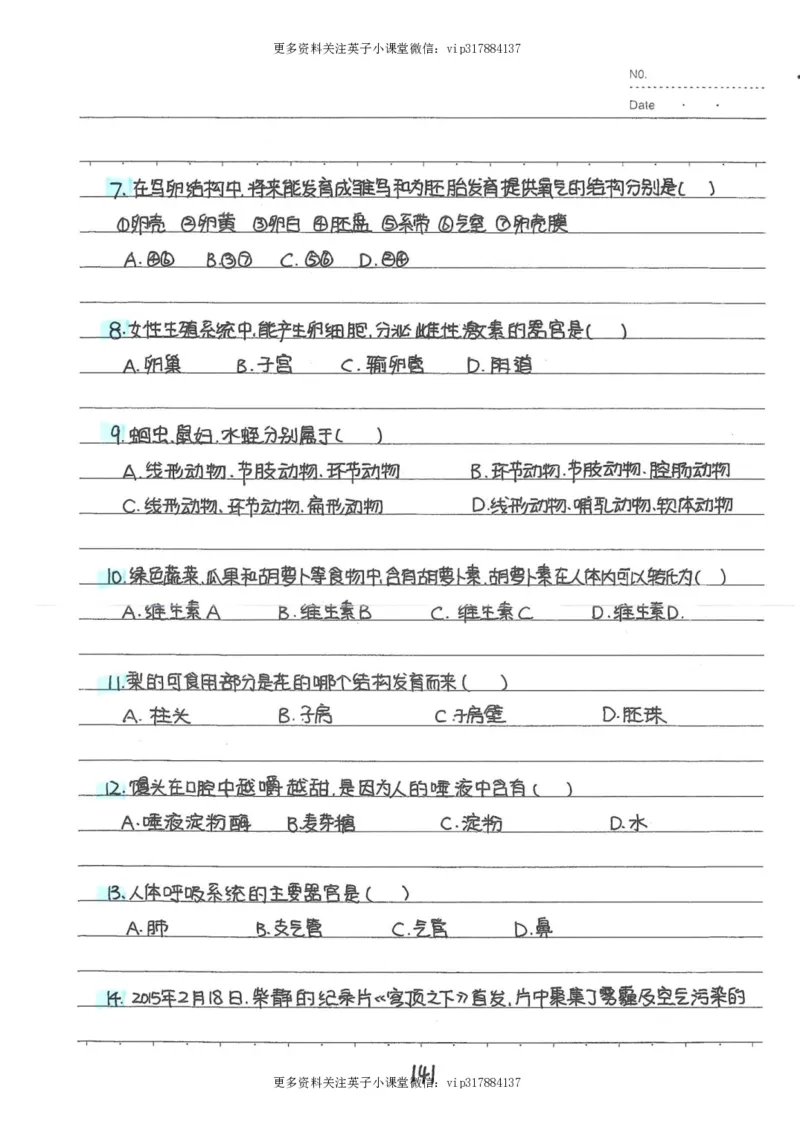 更多资料关注英子小课堂微信：vip317884137
NO.
Date · ·
7.在鸟卵结构中,将来能发育成雏鸟和为胚胎发育提供氧气的结构分别是( )
①卵壳 ②卵黄 ③卵白 ④胚盘 ⑤系带 ⑥气室 ⑦卵壳膜
A.④⑥ B.③⑦ C.⑤⑥ D.②④
8.女性生殖系统中,能产生卵细胞,分泌雌性激素的器官是( )
A.卵巢 B.子宫 C.输卵管 D.阴道
9.蛔虫、鼠妇、水蛭分别属于( )
A.线形动物、节肢动物、环节动物 B.环节动物、节肢动物、腔肠动物
C.线形动物、环节动物、扁形动物 D.线形动物、哺乳动物、软体动物
10.绿色蔬菜、瓜果和胡萝卜等食物中,含有胡萝卜素,胡萝卜素在人体内可以转化为( )
A.维生素A B.维生素B C.维生素C D.维生素D.
11.梨的可食用部分是花的哪个结构发育而来( )
A.柱头 B.子房 C.子房壁 D.胚珠
12.馒头在口腔中越嚼越甜,是因为人的唾液中含有( )
A.唾液淀粉酶 B.麦芽糖 C.淀粉 D.水
13.人体呼吸系统的主要器官是( )
A.肺 B.支气管 C.气管 D.鼻
14. 2015年2月18日,柴静的纪录片《穹顶之下》首发,片中聚集了雾霾及空气污染的
141
更多资料关注英子小课堂微信：vip317884137